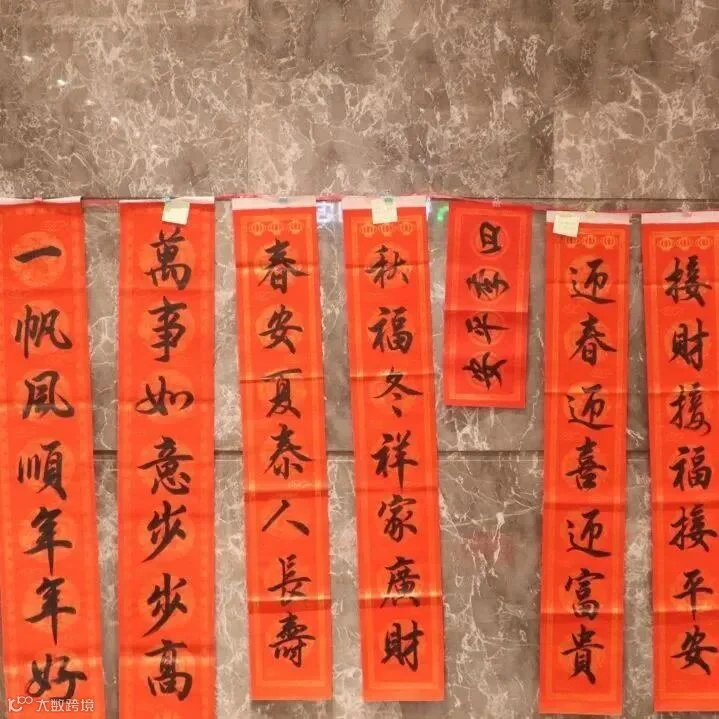 一帆风順年年好
萬事如意步步高
春安夏泰人長壽
秋福冬祥家廣財
四季平安
迎春迎喜迎富貴
接財接福接平安
大数跨境